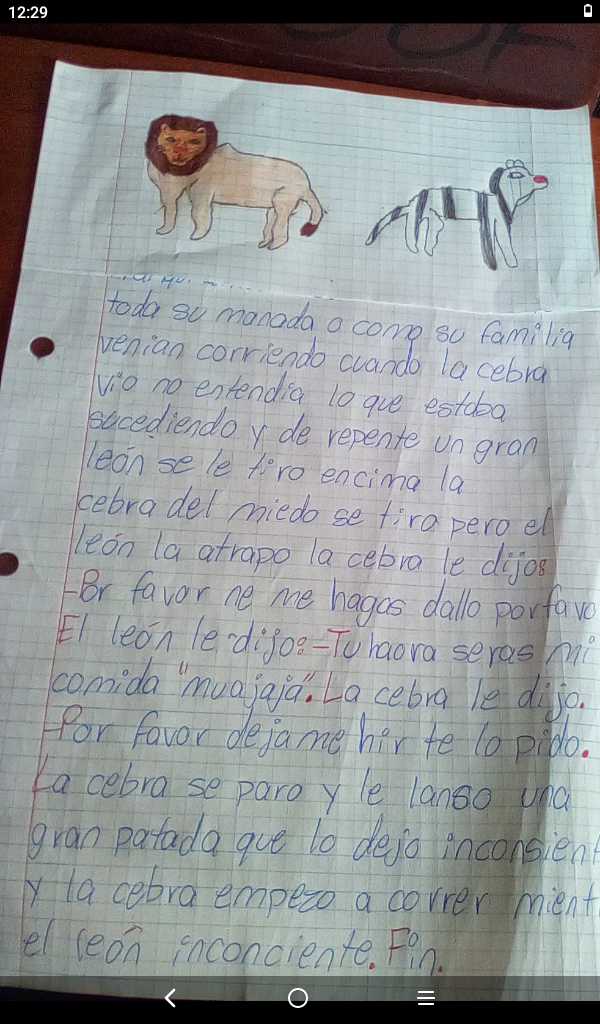 12:29
toda su manada o como su familia
venian corriendo cuando la cebra
vio no entendia lo que estaba
sucediendo y de repente un gran
león se le tiro encima la
cebra del miedo se tiro pero el
león la atrapo la cebra le dijo:
-Por favor ne me hagas dallo porfavo
El león le dijo:-Tu haora seras mi
comida "muajaja". La cebra le dijo.
-Por favor dejame hir te lo pido.
La cebra se paro y le lanso una
gran patada que lo dejo inconsient
y la cebra empezo a correr mient
el león inconciente. Fin.